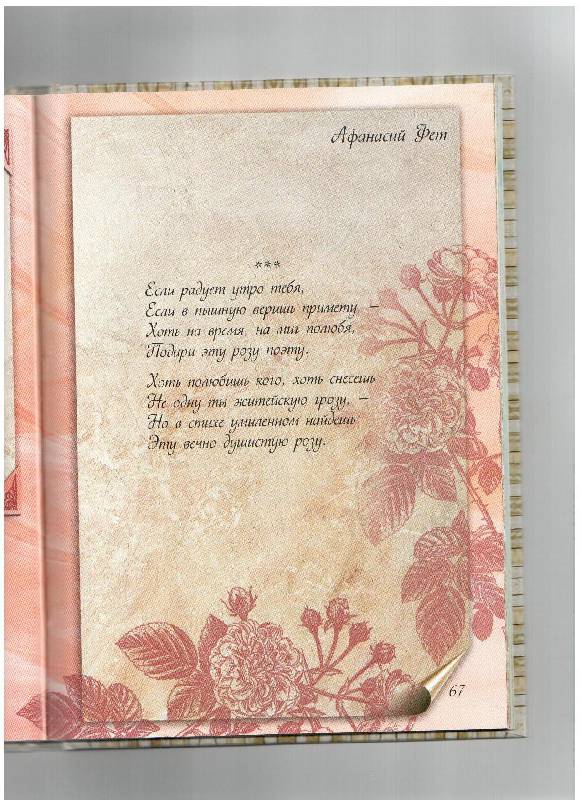 Афанасий Фет
***
Если радует утро тебя,
Если в пышную веришь примету, –
Хоть на время, на миг полюбя,
Подари эту розу поэту.
Хоть полюбишь кого, хоть снесёшь
Не одну ты житейскую грозу, –
Но в стихе умиленном найдёшь
Эту вечно душистую розу.
67